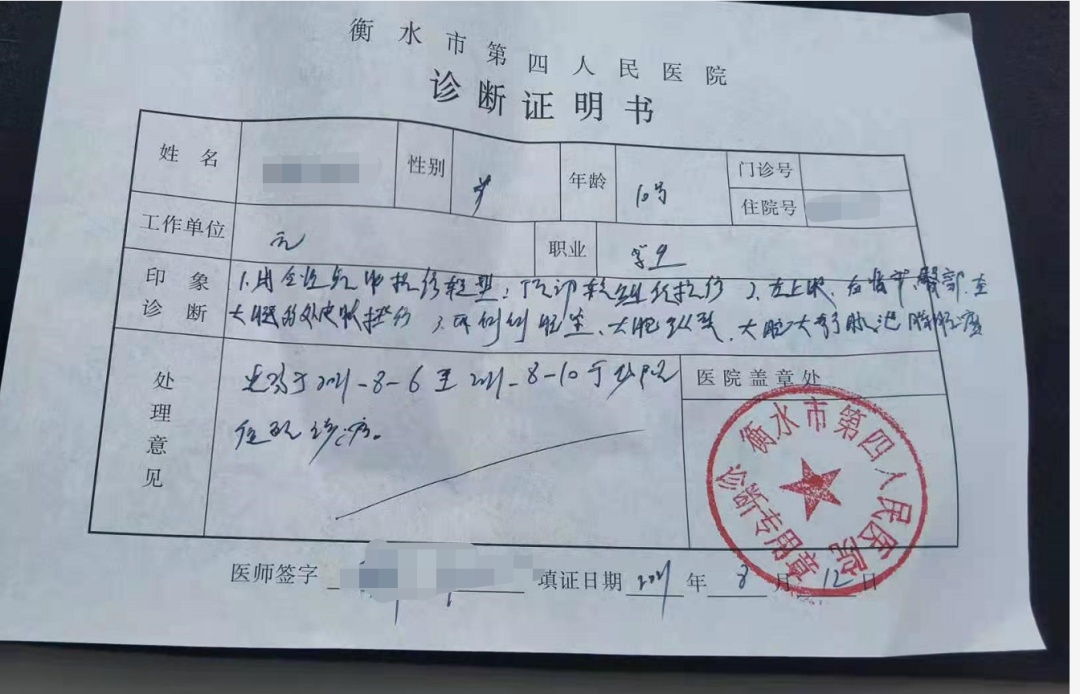 衡水市第四人民医院
诊断证明书
姓名 性别 男 年龄 10岁 门诊号
住院号
工作单位 无 职业 学生
印象 1.闭合性颅脑损伤轻型:顶部软组织挫伤 2.左上肢、右肩部、臀部、左
诊断 大腿多处皮肤挫伤 3.
处理意见 患者于2021-8-6至2021-8-10于我院
住院治疗。
医院盖章处
衡水市第四人民医院
诊断专用章
医师签字 填证日期 2021 年 8 月 12 日